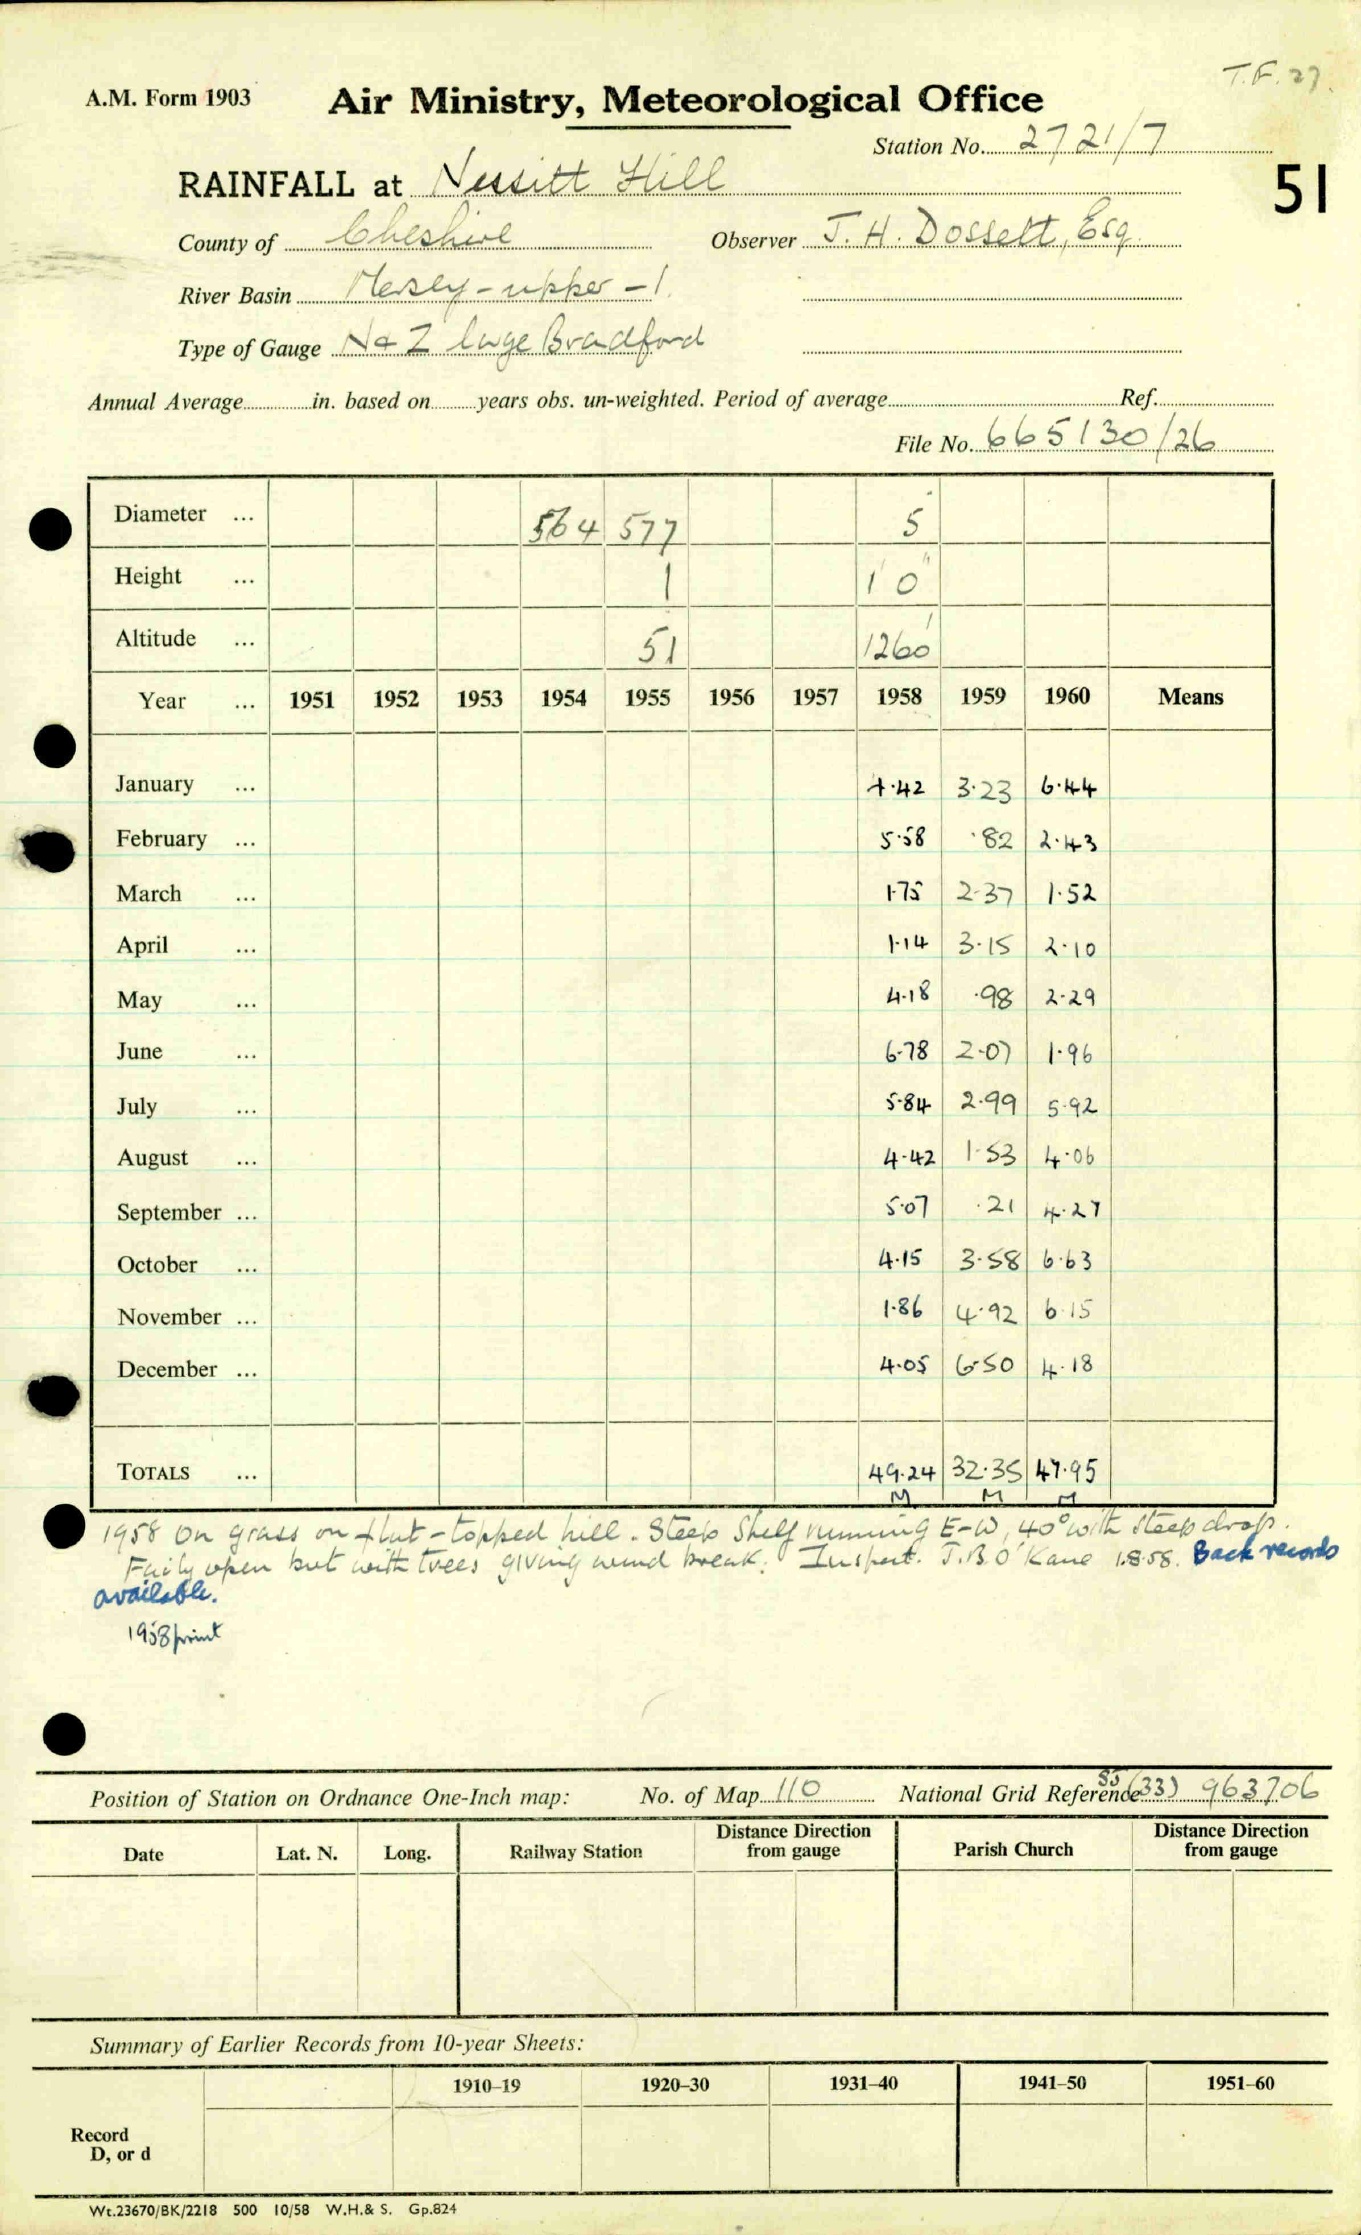 T.F. 27
A.M. Form 1903 Air Ministry, Meteorological Office
Station No. 2721/7
51
RAINFALL at Nessitt Hill
County of Cheshire Observer J. H. Dossett, Esq.
River Basin Mersey - upper - 1.
Type of Gauge N & Z large Bradford
Annual Average in. based on years obs. un-weighted. Period of average Ref.
File No. 665130/26
Diameter ... 564 577 5
Height ... 1 1' 0"
Altitude ... 51 1260'
Year ... 1951 1952 1953 1954 1955 1956 1957 1958 1959 1960 Means
January ... 4.42 3.23 6.44
February ... 5.58 .82 2.43
March ... 1.75 2.37 1.52
April ... 1.14 3.15 2.10
May ... 4.18 .98 2.29
June ... 6.78 2.07 1.96
July ... 5.84 2.99 5.92
August ... 4.42 1.53 4.06
September ... 5.07 .21 4.27
October ... 4.15 3.58 6.63
November ... 1.86 4.92 6.15
December ... 4.05 6.50 4.18
TOTALS ... 49.24 32.35 47.95
M M M
1958 On grass on flat-topped hill. Steep shelf running E-W, 40° with steep drop.
Fairly open but with trees giving wind break. Inspect. J.B. O'Kane 1.8.58. Back records
available.
1958 print
Position of Station on Ordnance One-Inch map: No. of Map 110 National Grid Reference SJ (33) 963706
Date Lat. N. Long. Railway Station Distance Direction from gauge Parish Church Distance Direction from gauge
Summary of Earlier Records from 10-year Sheets:
1910–19 1920–30 1931–40 1941–50 1951–60
Record
D, or d
Wt.23670/BK/2218 500 10/58 W.H.& S. Gp.824